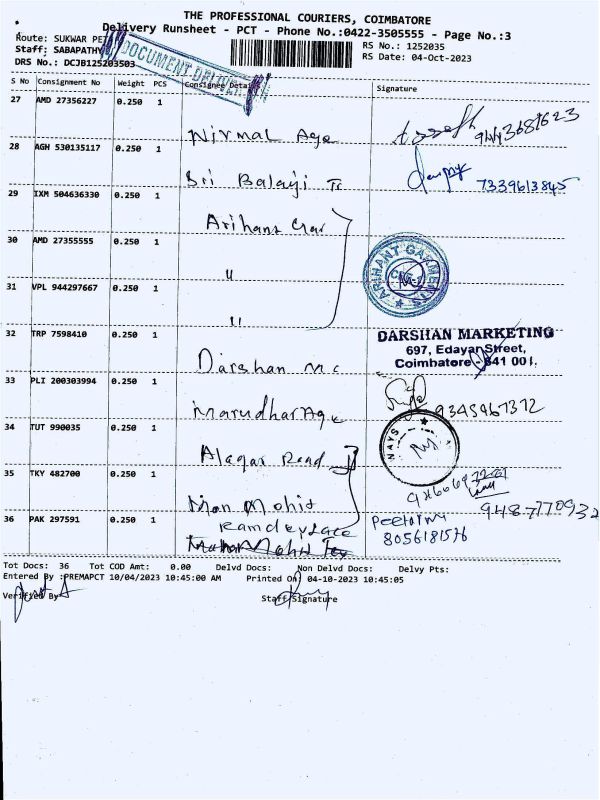 THE PROFESSIONAL COURIERS, COIMBATORE
Delivery Runsheet - PCT - Phone No.:0422-3505555 - Page No.:3
Route: SUKWAR PET
RS No.: 1252035
Staff: SABAPATHY
RS Date: 04-Oct-2023
DRS No.: DCJB125203503
DOCUMENT DELIVER
S No Consignment No Weight PCS Consignee Details Signature
27 AMD 27356227 0.250 1 Nirmal Age
28 AGH 530135117 0.250 1 Sri Balaji Tc 7339613845
29 IXM 504636330 0.250 1 Arihant Gar
30 AMD 27355555 0.250 1 "
ARIHANT GARMENTS
31 VPL 944297667 0.250 1 "
32 TRP 7598410 0.250 1 Darshan Mc
DARSHAN MARKETING
697, Edayar Street,
Coimbatore - 641 001.
33 PLI 200303994 0.250 1 Marudhar Age
34 TUT 990035 0.250 1 Alagar Read
NAYS
35 TKY 482700 0.250 1 Man Mohit
9487770932
36 PAK 297591 0.250 1 Ramdev Lace
8056181576
Tot Docs: 36 Tot COD Amt: 0.00 Delvd Docs: Non Delvd Docs: Delvy Pts:
Entered By :PREMAPCT 10/04/2023 10:45:00 AM Printed On: 04-10-2023 10:45:05
Verified By
Staff Signature